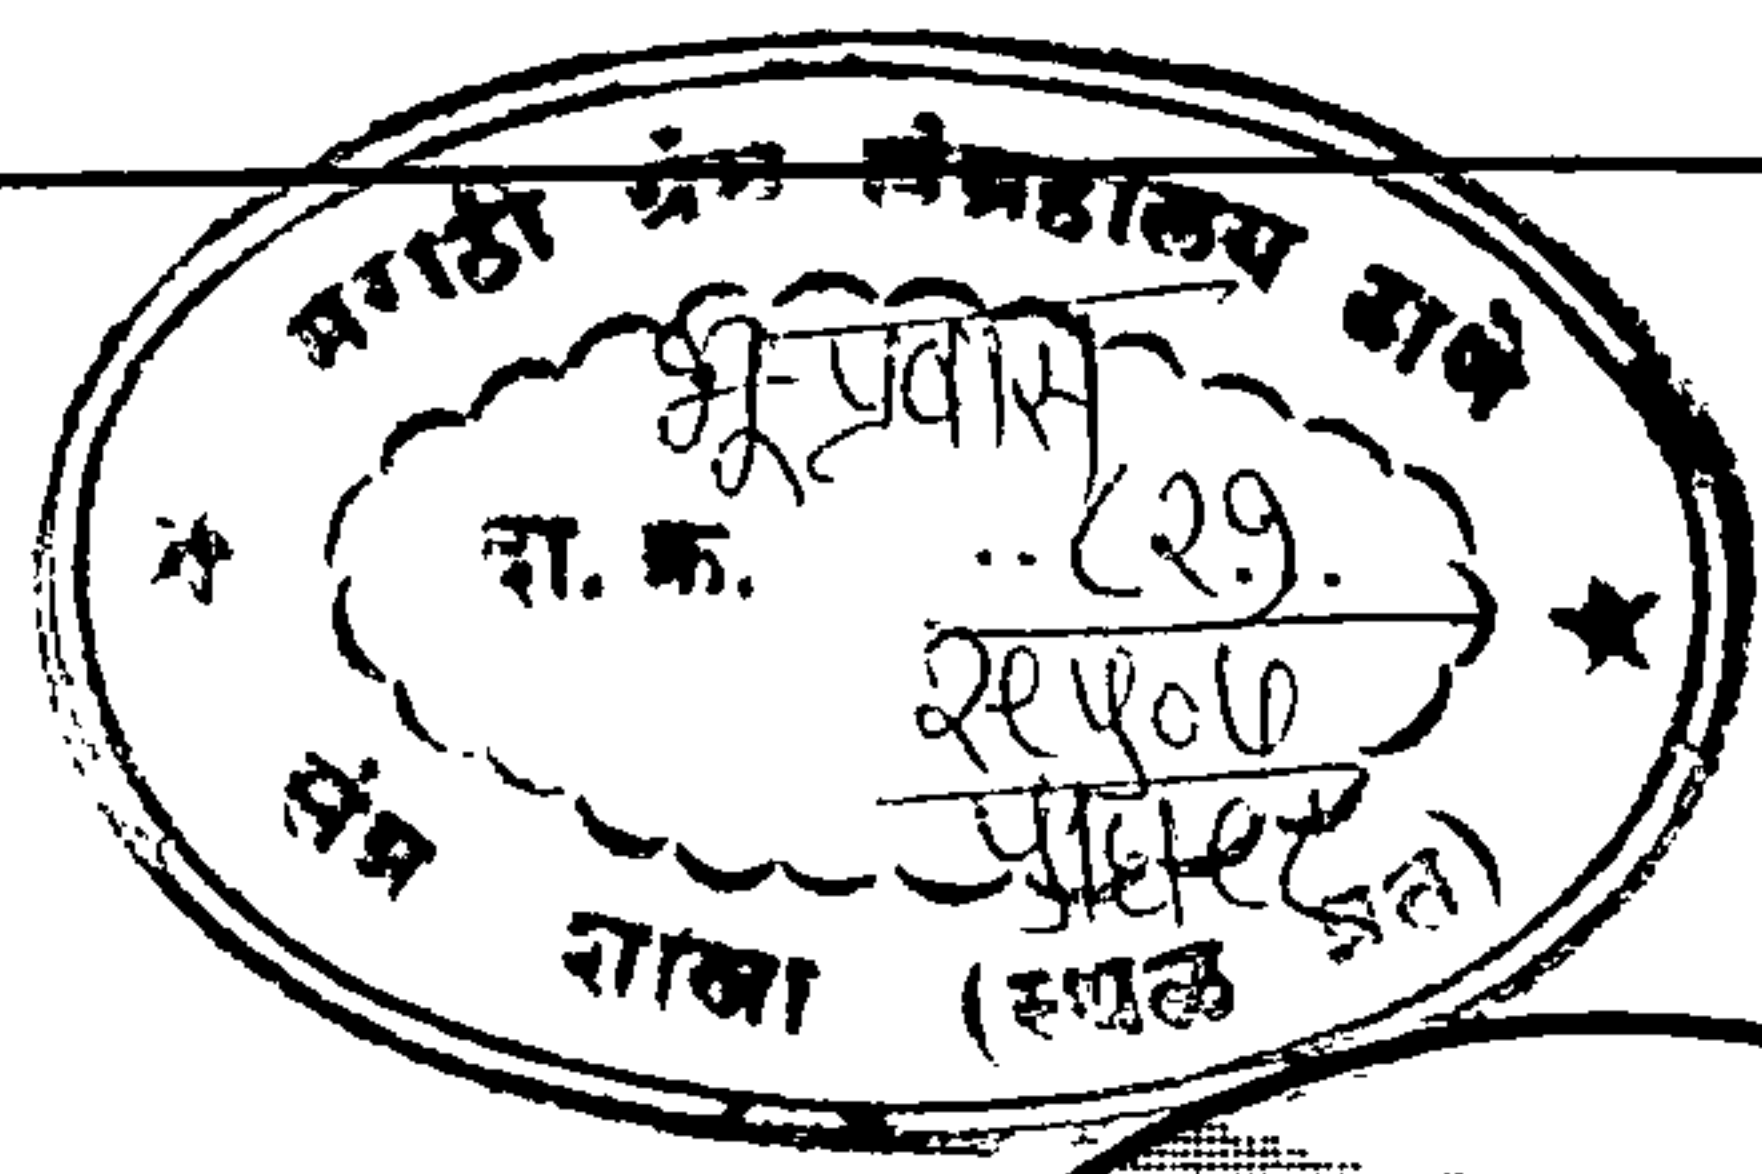 मराठी ग्रंथ संग्रहालय ठाणे
भू-प्रवास
शा. क्र. .. ८२१. .
२९५०७
संग्र शाखा (स्थळ प्रत)